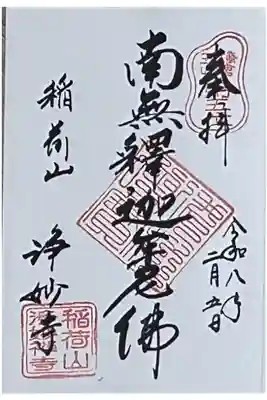 奉拝
令和八年
二月五日
南無釋迦牟尼佛
稲荷山
浄妙寺
稲荷山